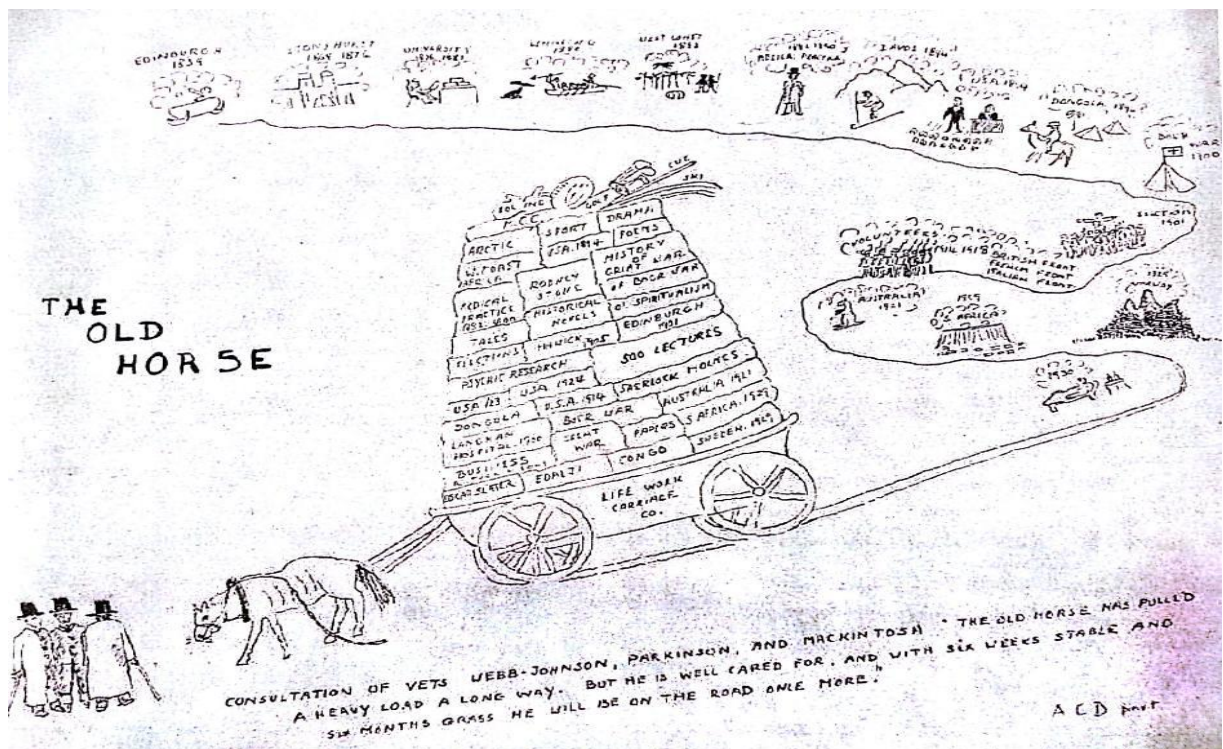 EDINBURGH
1859
STONYHURST
1868 1876
UNIVERSITY
1876 1881
WHALING
1880
WEST COAST
1882
1882 1890
MEDICAL PRACTICE
DAVOS 1894
USA 1894
DONGOLA, 1896
BOER WAR
1900
ELECTION
VOLUNTEERS
1914 1918
BRITISH FRONT
FRENCH FRONT
ITALIAN FRONT
AUSTRALIA
1921
1929
S. AFRICA
1930
THE
OLD
HORSE
CUE
SKI
GOLF
M.C.C.
SPORT
DRAMA
ARCTIC
USA. 1894
POEMS
W. COAST
AFRICA
RODNEY
STONE
HISTORY
OF
GREAT WAR
MEDICAL
PRACTICE
1882-1890
HISTORICAL
NOVELS
OF BOER WAR
OF SPIRITUALISM
TALES
EDINBURGH
ELECTIONS
HAWICK 1905
500 LECTURES
PSYCHIC RESEARCH
USA 123
USA 1924
SHERLOCK HOLMES
DONGOLA
U.S.A. 1914
BOER WAR
AUSTRALIA 1921
LANGMAN
HOSPITAL. 1900
WAR
PAPERS
S AFRICA. 1929
BUSINESS
EDGAR SLATER
EDALJI
CONGO
SWEDEN. 1929
LIFE WORK
CARRIAGE
CO.
CONSULTATION OF VETS WEBB-JOHNSON, PARKINSON, AND MACKINTOSH "THE OLD HORSE HAS PULLED
A HEAVY LOAD A LONG WAY. BUT HE IS WELL CARED FOR, AND WITH SIX WEEKS STABLE AND
SIX MONTHS GRASS HE WILL BE ON THE ROAD ONCE MORE."
A C D